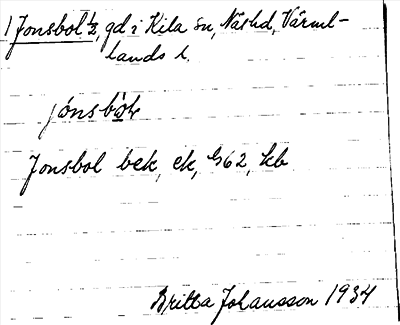 1 Jonsbol ½, gd i Kila sn, Näshd, Värml-
lands l.
jónsbòl
Jonsbol bek, ek, G62, kb
Britta Johansson 1934